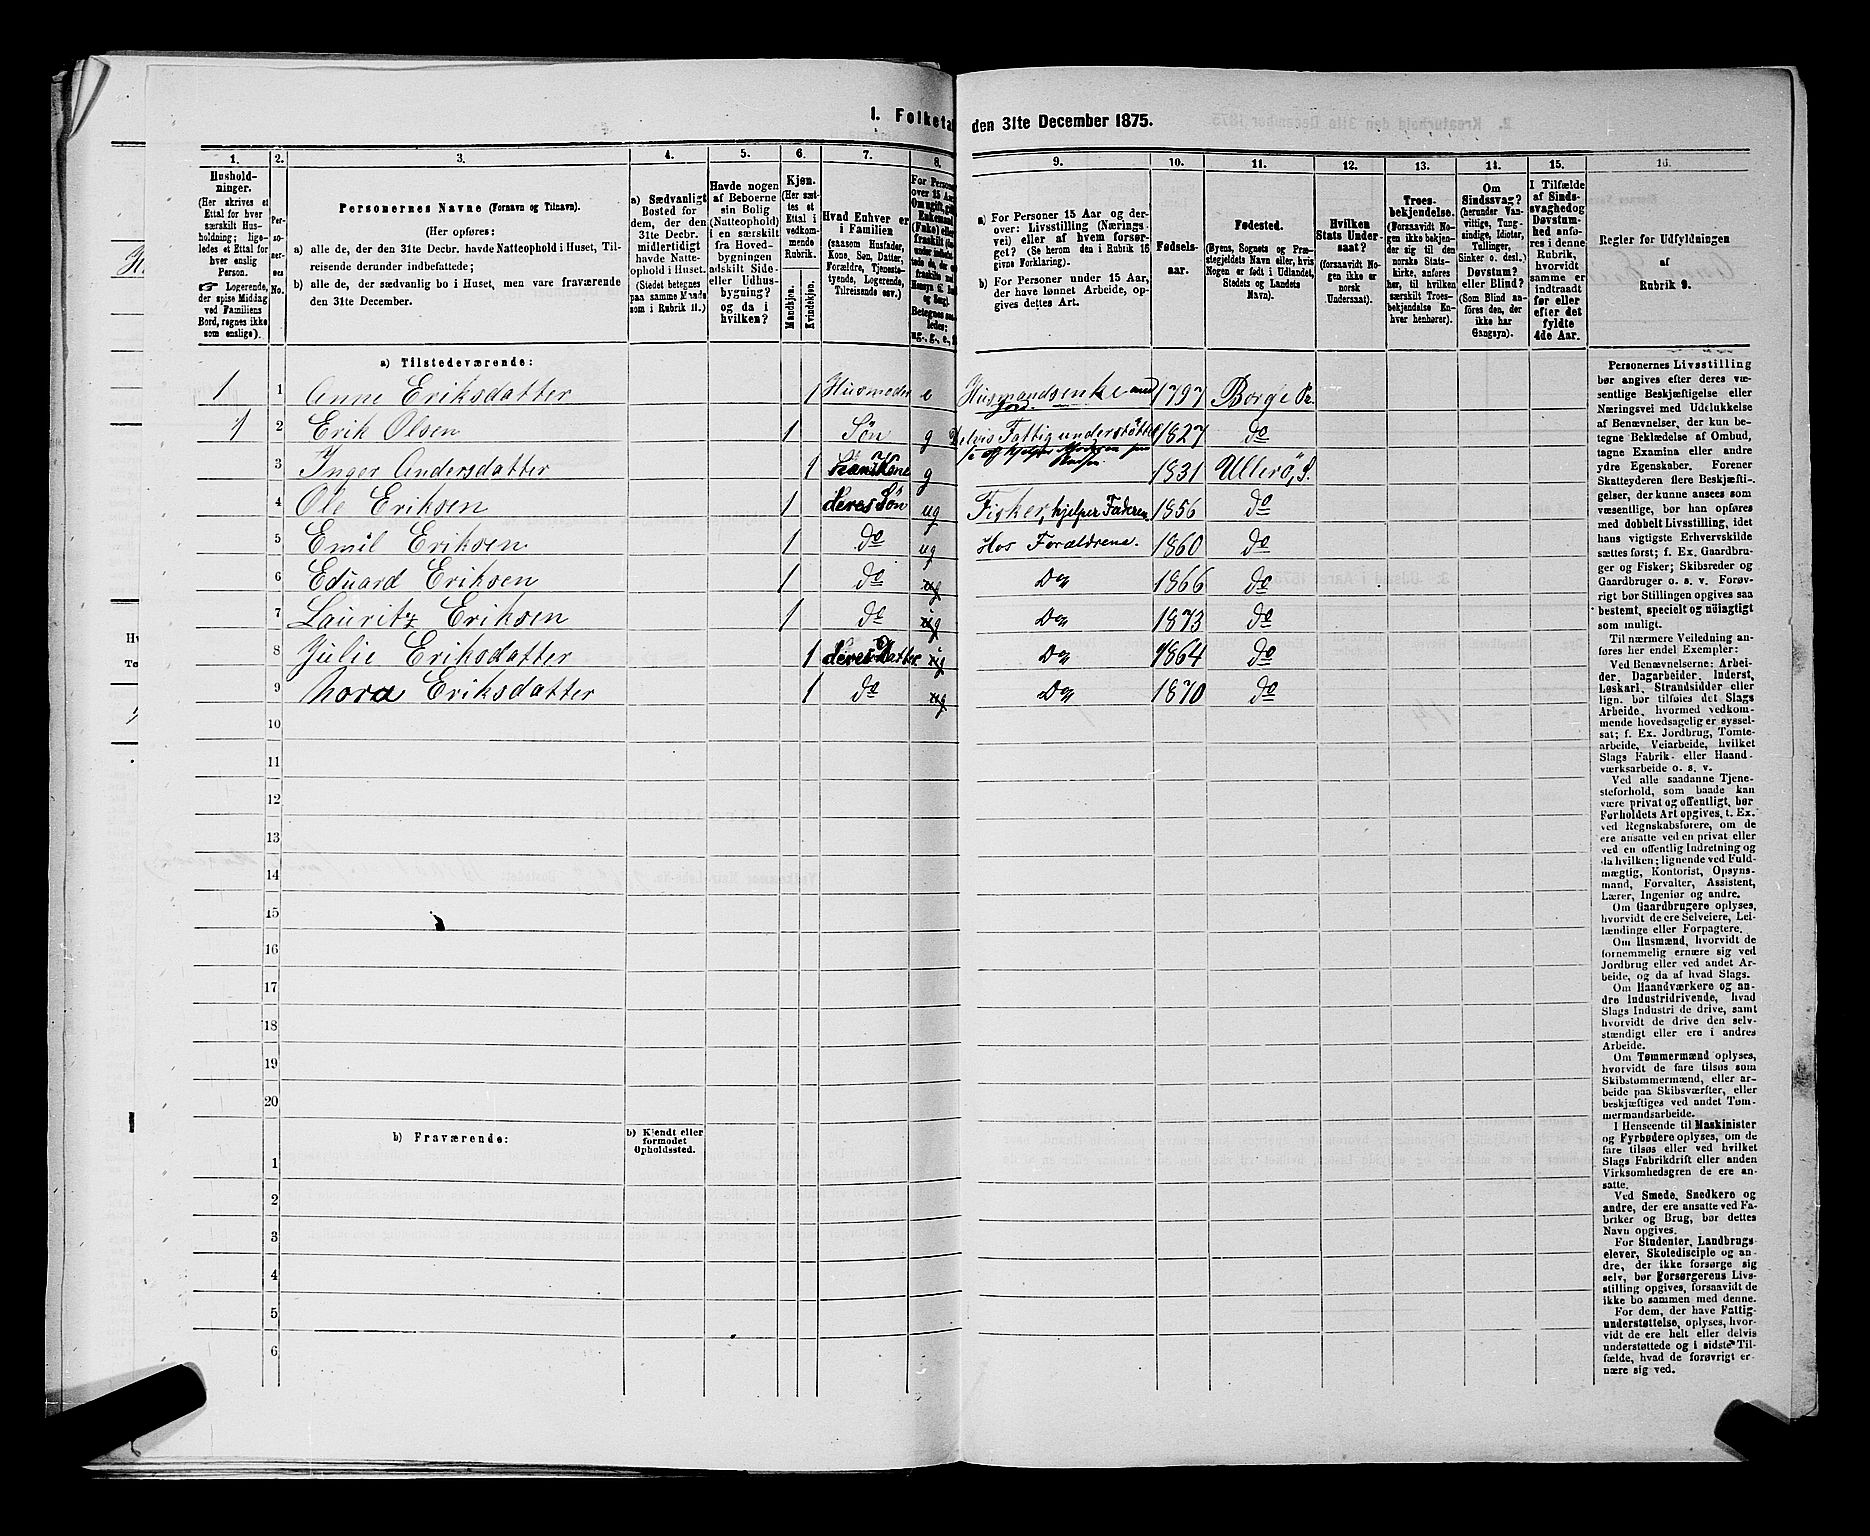 1. Folketa den 31te December 1875.
1. 2. 3. 4. 5. 6. 7. 8. 9. 10. 11. 12. 13. 14. 15. 16.
Hushold-
ninger.
(Her skrives et
Ettal for hver
særskilt Hus-
holdning; lige-
ledes et Ettal for
hver enslig
Person.
Logerende,
der spise Middag
ved Familiens
Bord, regnes ikke
som enslige).
Per-
so-
ner-
nes
No.
Personernes Navne (Fornavn og Tilnavn).
(Her opføres:
a) alle de, der den 31te Decbr. havde Natteophold i Huset, Til-
reisende derunder indbefattede;
b) alle de, der sædvanlig bo i Huset, men vare fraværende
den 31te December.
a) Sædvanligt
Bosted for
dem, der den
31te Decbr.
midlertidigt
havde Natte-
ophold i Huset.
(Stedet betegnes
paa samme Maade
som i Rubrik 11.)
Havde nogen
af Beboerne
sin Bolig
(Natteophold)
i en særskilt
fra Hoved-
bygningen
adskilt Side-
eller Udhus-
bygning?
og da i
hvilken?
Kjøn.
(Her sæt-
tes et
Ettal i
vedkom-
mende
Rubrik.
Mandkjøn.
Kvindekjøn.
Hvad Enhver er
i Familien
(saasom Husfader,
Kone, Søn, Datter,
Forældre, Tjeneste-
tyende, Logerende,
Tilreisende osv.)
For Person
over 15 Aar
Om ugift, gift
Enkemand
(Enke) eller
fraskilt
Betegnes saa-
ledes:
ug., g., e., f.
a) For Personer 15 Aar og der-
over: Livsstilling (Nærings-
vei) eller af hvem forsør-
get? (Se herom den i Rubrik 16
givne Forklaring).
b) For Personer under 15 Aar,
der have lønnet Arbeide, op-
gives dettes Art.
Fødsels-
aar.
Fødested.
(Byens, Sognets og Præ-
stegjeldets Navn eller, hvis
Nogen er født i Udlandet,
Stedets og Landets
Navn).
Hvilken
Stats Under-
saat?
(forsaavidt No-
gen ikke er
norsk
Undersaat).
Troes-
bekjendelse.
(Forsaavidt No-
gen ikke bekjen-
der sig til den
norske Stats-
kirke, anføres
her, til hvilken
særskilt Troes-
bekjendelse En-
hver henhører).
Om
Sindssvag?
(herunder Van-
vittige, Tung-
sindige, Idioter,
Tullinger,
Sinker o. desl.)
Døvstum?
eller Blind?
(Som Blind an-
føres den, der
ikke har
Gangsyn).
I Tilfælde
af Sinds-
svaghed og
Døvstum-
hed anfø-
res i denne
Rubrik,
hvorvidt
samme er
indtraadt
før eller
efter det
fyldte
4de Aar.
Regler før Udfyldningen
af
Rubrik 9.
a) Tilstedeværende:
1 1 Anne Eriksdatter 1 Husmoder e Husmandsenke med Jord. 1797 Borge Pr.
1 2 Erik Olsen 1 Søn g Delvis Fattigunderstøttet 1827 do
3 Inger Andersdatter 1 Søns Kone g 1831 Ullerö, S.
4 Ole Eriksen 1 deres Søn ug Fisker, hjelper Faderen 1856 do
5 Emil Eriksen 1 do ug Hos Forældrene. 1860 do
6 Eduard Eriksen 1 do ug Do 1866 do
7 Lauritz Eriksen 1 do ug Do 1873 do
8 Julie Eriksdatter 1 deres Datter ug Do 1864 do
9 Nora Eriksdatter 1 do ug Do 1870 do
10
11
12
13
14
15
16
17
18
19
20
b) Fraværende:
b) Kjendt eller
formodet
Opholdssted.
1
2
3
4
5
6
Personernes Livsstilling
bør angives efter deres væ-
sentlige Beskjæftigelse eller
Næringsvei med Udelukkelse
af Benævnelser, der kun be-
tegne Beklædelse af Ombud,
tagne Examina eller andre
ydre Egenskaber. Forener
Skatteyderen flere Beskjæfti-
gelser, der kunne ansees som
væsentlige, bør han opføres
med dobbelt Livsstilling, idet
hans vigtigste Erhvervskilde
sættes først; f. Ex. Gaardbru-
ger og Fisker; Skibsreder og
Gaardbruger o. s. v. Forøv-
rigt bør Stillingen opgives saa
bestemt, specielt og nöiagtigt
som muligt.
Til nærmere Veiledning an-
føres her endel Exempler:
Ved Benævnelserne: Arbei-
der, Dagarbeider, Inderst,
Løskarl, Strandsidder eller
lign. bør tilføies det Slags
Arbeide, hvormed vedkom-
mende hovedsagelig er syssel-
sat; f. Ex. Jordbrug, Tomte-
arbeide, Veiarbeide, hvilket
Slags Fabrik- eller Haand-
værksarbeide o. s. v.
Ved alle saadanne Tjene-
steforhold, som baade kan
være privat og offentligt, bør
Forholdets Art opgives, t. Ex.
ved Regnskabsførere, om de
ere ansatte ved en privat eller
ved en offentlig Indretning og
da hvilken; lignende ved Fuld-
mægtig, Kontorist, Opsyns-
mand, Forvalter, Assistent,
Lærer, Ingeniør og andre.
Om Gaardbrugere oplyses,
hvorvidt de ere Selveiere, Lei-
lændinge eller Forpagtere.
Om Husmænd, hvorvidt de
fornemmelig ernære sig ved
Jordbrug eller ved andet Ar-
beide, og da af hvad Slags.
Om Haandværkere og an-
dre Industridrivende, hvad
Slags Industri de drive, samt
hvorvidt de drive den selv-
stændigt eller ere i andres
Arbeide.
Om Tømmermænd oplyses,
hvorvidt de fare tilsøs som
Skibstømmermænd, eller ar-
beide paa Skibsværfter, eller
beskjæftiges ved andet Tøm-
mermandsarbeide.
I Henseende til Maskinister
og Fyrbødere oplyses, om de
fare tilsøs eller ved hvilket
Slags Fabrikdrift eller anden
Virksomhedsgren de ere an-
satte.
Ved Smede, Snedkere og
andre, der ere ansatte ved Fa-
briker og Brug, bør dettes
Navn opgives.
For Studenter, Landbrugs-
elever, Skoledisciple og an-
dre, der ikke forsørge sig
selv, bør Forsørgerens Livs-
stilling opgives, forsaavidt de
ikke bo sammen med denne.
For dem, der have Fattig-
understøttelse, oplyses, hvor-
vidt de ere helt eller delvis
understøttede og i sidste Til-
fælde, hvad de forøvrigt er-
nære sig ved.